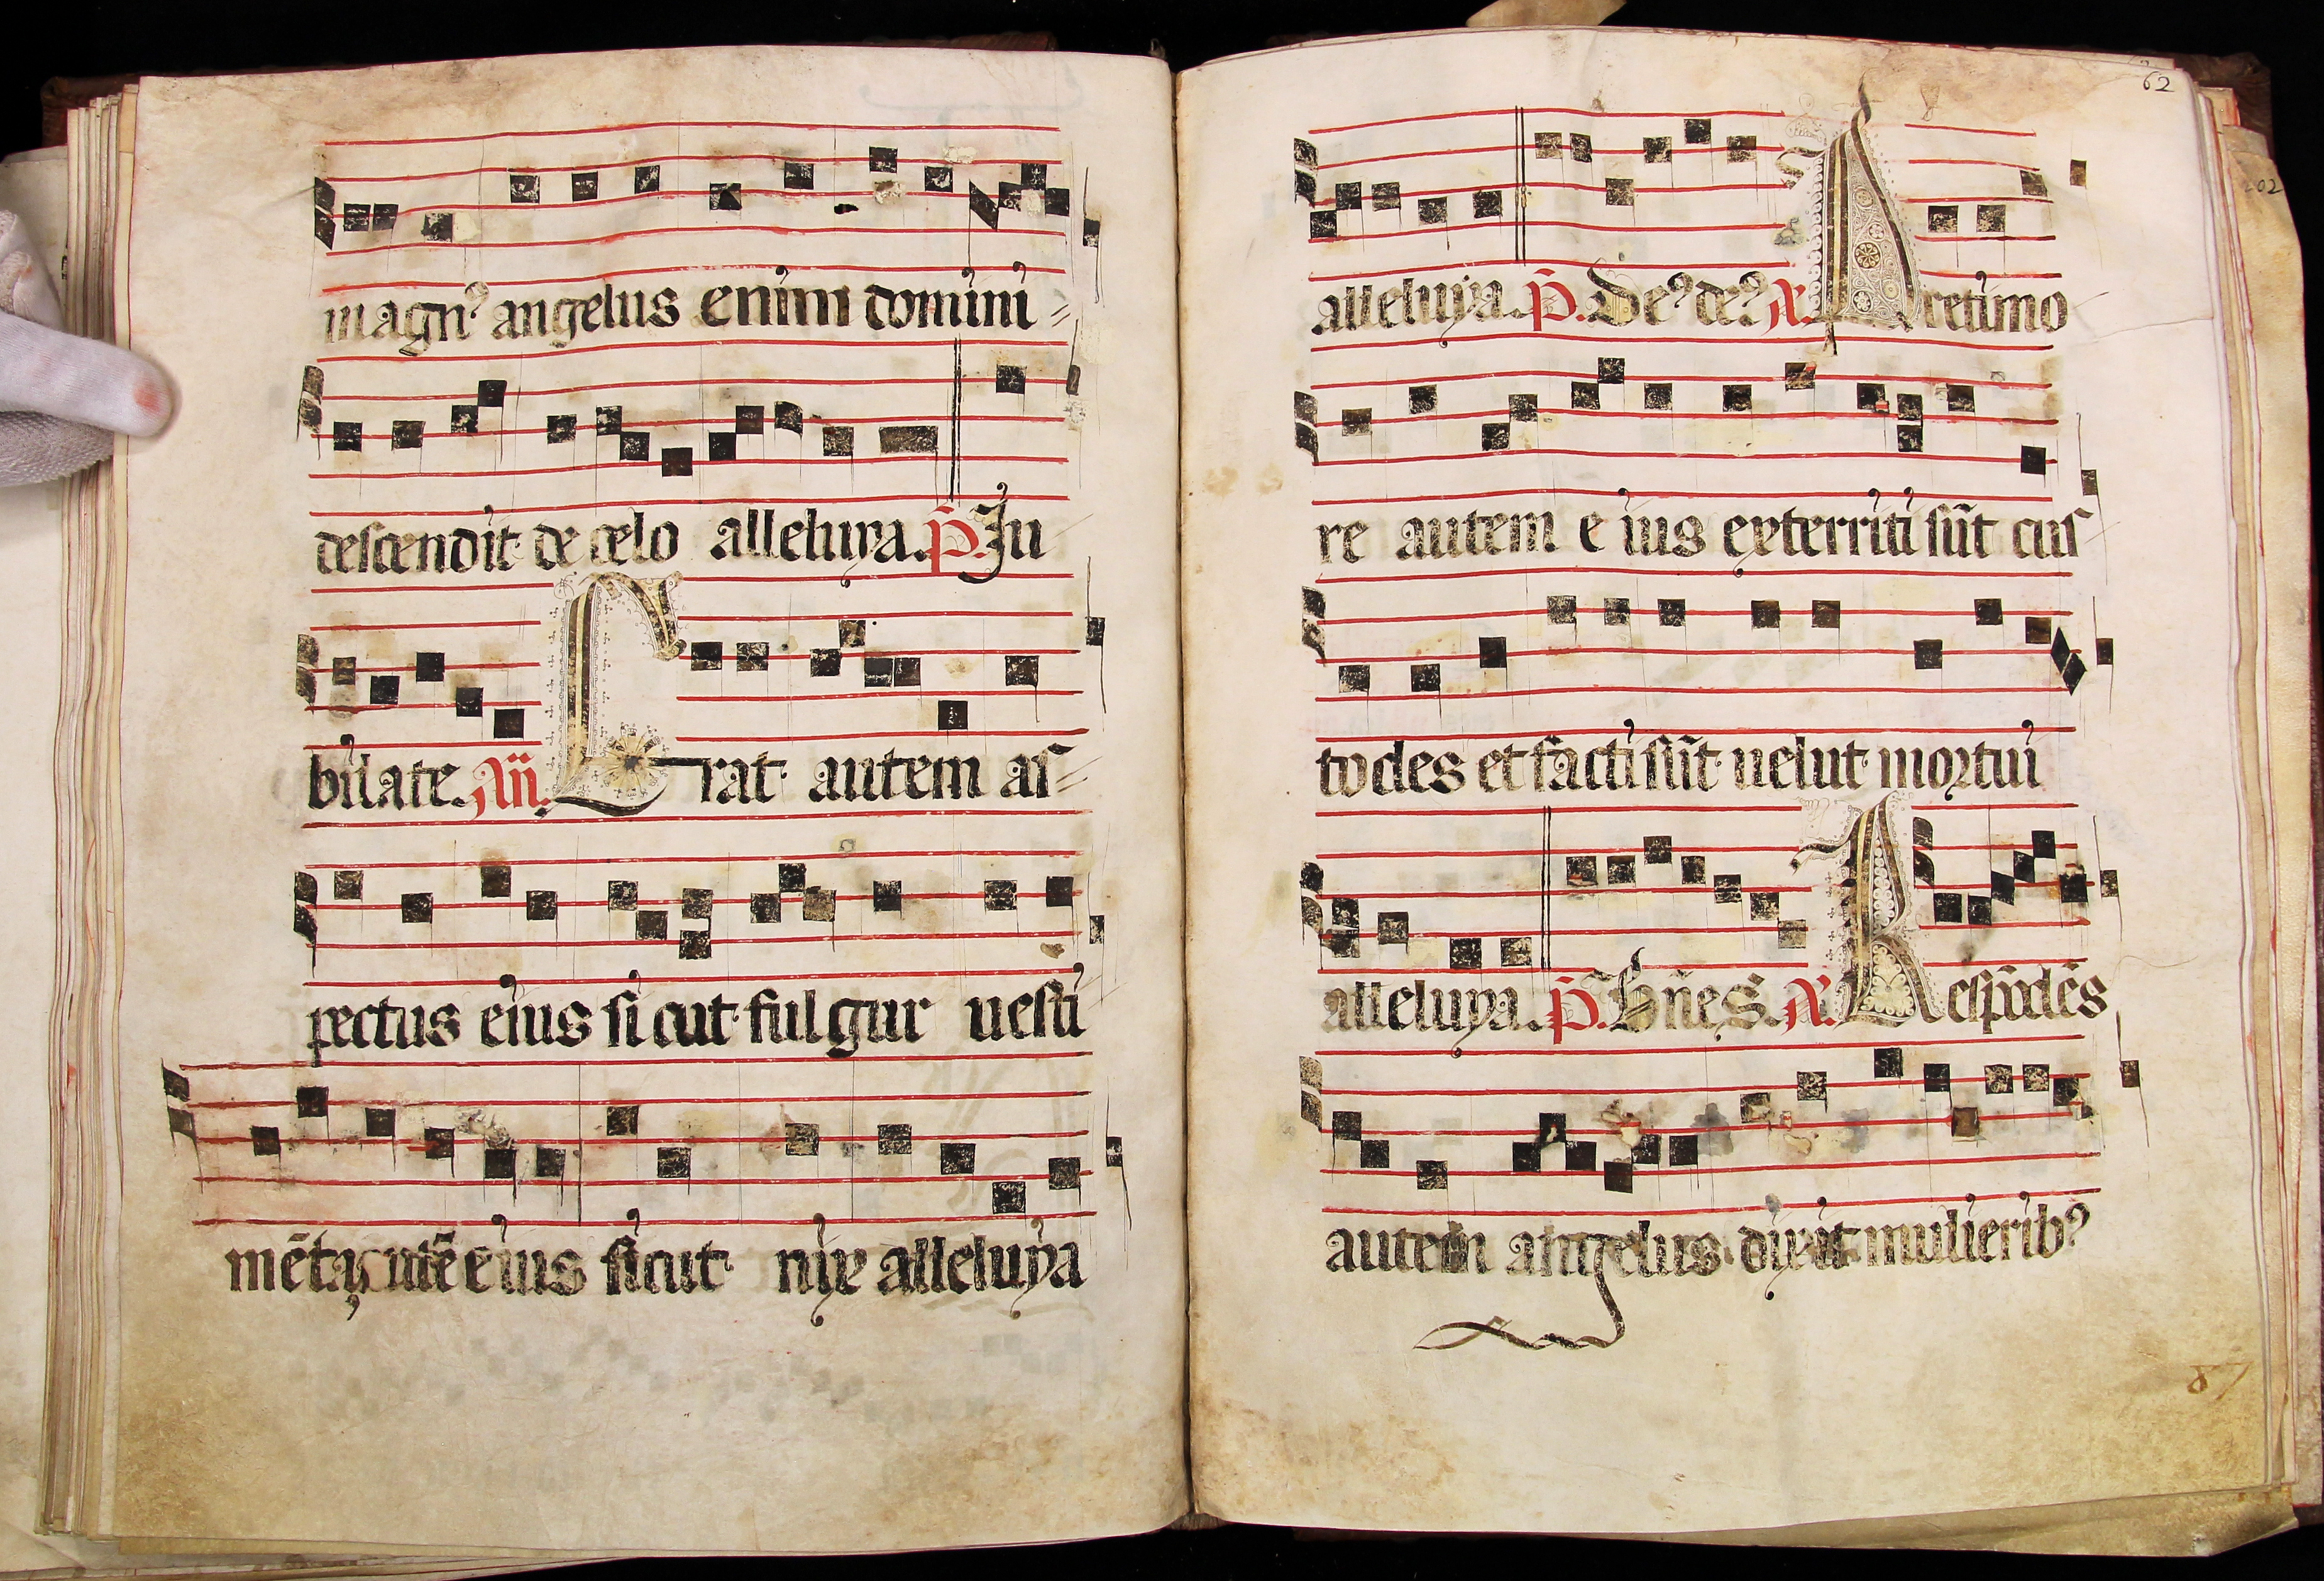 magn⁹ angelus enim domini
descendit de celo alleluya. P̄. Iu
bilate. Añ. Erat autem as
pectus eius sicut fulgur uesti
mēta autē eius sicut nix alleluya
62
alleluya. P̄. De⁹ de⁹ A. A timo
re autem eius exterriti sūt cus
todes et facti sūt uelut mortui
alleluya. P̄. Bñes. A. Respōdēs
autem angelus dixit mulierib⁹
202
87